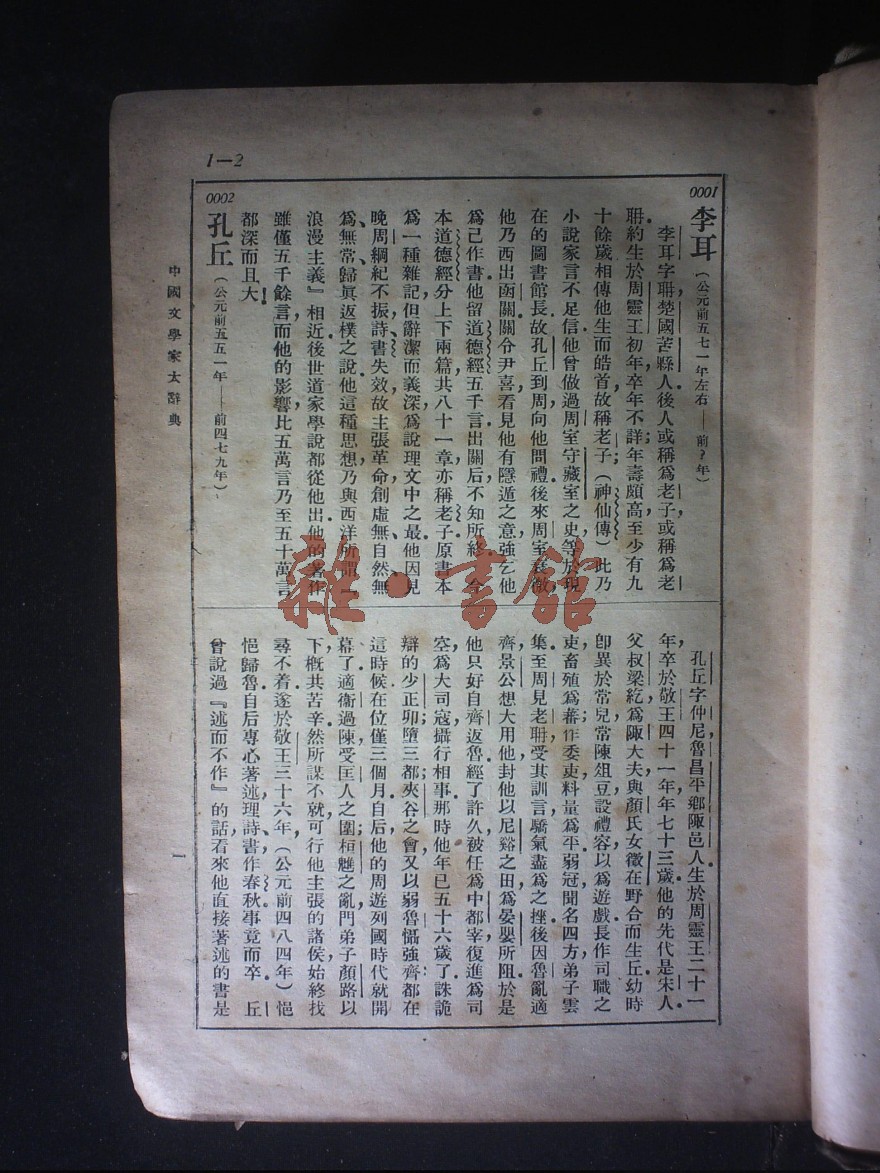 1—2
0001
李耳（公元前五七一年左右——前?年）
李耳字聃，楚國苦縣人。後人或稱爲老子，或稱爲老
聃。約生於周靈王初年，卒年不詳；年壽頗高，至少有九
十餘歲。相傳他生而皓首，故稱老子；（神仙傳）此乃
小說家言，不足信。他曾做過周室守藏室之史，等於現
在的圖書館長，故孔丘到周，向他問禮。後來周室衰微，
他乃西出函關。關令尹喜看見他有隱遁之意，強乞他
爲己作書。他留道德經五千言，出關后，不知所終。今
本道德經分上下兩篇，共八十一章，亦稱老子。原書本
爲一種雜記，但辭潔而義深，爲說理文中之最。他因見
晚周綱紀不振，詩、書失效，故主張革命，創虛無、自然、無
爲、無常、歸眞返樸之說。他這種思想，乃與西洋所謂『
浪漫主義』相近。後世道家學說，都從他出。他的著作
雖僅五千餘言，而他的影響，比五萬言乃至五十萬言
都深而且大！
0002
孔丘（公元前五五一年——前四七九年）
孔丘字仲尼，魯昌平鄉陬邑人。生於周靈王二十一
年，卒於敬王四十一年，年七十三歲。他的先代是宋人。
父叔梁紇，爲陬大夫，與顏氏女徵在野合而生丘。幼時
卽異於常兒，常陳俎豆，設禮容，以爲遊戲。長作司職之
吏，畜殖爲蕃；作委吏，料量爲平。弱冠聞名四方，弟子雲
集。至周見老聃，受其訓言，驕氣盡爲之挫。後因魯亂適
齊，景公想大用他，封他以尼谿之田，爲晏嬰所阻。於是
他只好自齊返魯。經了許久，被任爲中都宰，復進爲司
空，爲大司寇，攝行相事。那時他年已五十六歲了。誅詭
辯的少正卯；墮三都；夾谷之會，又以弱魯懾強齊：都在
這時候。在位僅三個月，自后他的周遊列國時代就開
幕了。適衛過陳，受匡人之圍，桓魋之亂，門弟子顏路以
下，槪共苦辛。然所謀不就，可行他主張的諸侯，始終找
尋不着。遂於敬王三十六年，（公元前四八四年）悒
悒歸魯。自后專心著述，理詩、書，作春秋，事竟而卒。丘
曾說過『述而不作』的話，看來他直接著述的書是
中國文學家大辭典
一
雜·書館